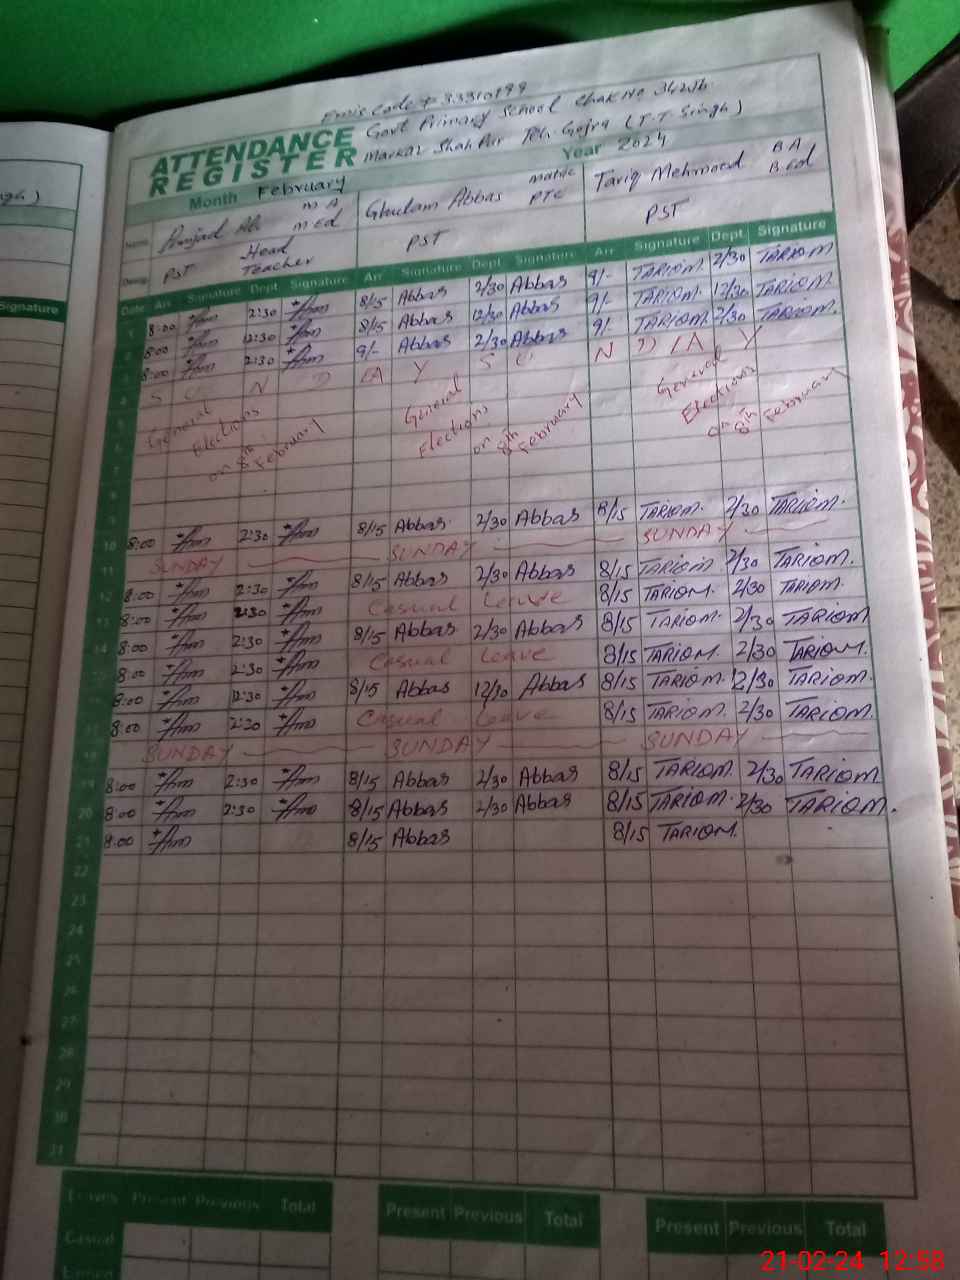 Govt Primary School Chak No
ATTENDANCE
REGISTER
Markaz Shah Pur Teh. Gojra (T.T. Singh)
Month February
Year 2024
Name Amjad Ali M A M Ed Ghulam Abbas Matric PTC Tariq Mehmood B A B Ed
Desig PST Head Teacher PST PST
Date Arr Signature Dept Signature Arr Signature Dept Signature Arr Signature Dept Signature
1 8:00 2:30 8/15 Abbas 2/30 Abbas 9/- TARIQM. 2/30 TARIQM
2 8:00 12:30 8/15 Abbas 12/30 Abbas 9/- TARIQM. 12/30 TARIQM
3 8:00 2:30 9/- Abbas 2/30 Abbas 9/- TARIQM. 2/30 TARIQM.
4 S U N D A Y S U N D A Y
5 General General General
6 Elections Elections Elections
7 on 8th February on 8th February on 8th February
8
9
10 8:00 2:30 8/15 Abbas 2/30 Abbas 8/15 TARIQM. 2/30 TARIQM.
11 SUNDAY SUNDAY SUNDAY
12 8:00 2:30 8/15 Abbas 2/30 Abbas 8/15 TARIQM 2/30 TARIQM.
13 8:00 2:30 Casual Leave 8/15 TARIQM. 2/30 TARIQM.
14 8:00 2:30 8/15 Abbas 2/30 Abbas 8/15 TARIQM. 2/30 TARIQM
15 8:00 2:30 Casual Leave 8/15 TARIQM. 2/30 TARIQM.
16 8:00 12:30 8/15 Abbas 12/30 Abbas 8/15 TARIQM. 12/30 TARIQM.
17 8:00 2:30 Casual Leave 8/15 TARIQM. 2/30 TARIQM.
18 SUNDAY SUNDAY SUNDAY
19 8:00 2:30 8/15 Abbas 2/30 Abbas 8/15 TARIQM. 2/30 TARIQM.
20 8:00 2:30 8/15 Abbas 2/30 Abbas 8/15 TARIQM. 2/30 TARIQM.
21 8:00 8/15 Abbas 8/15 TARIQM.
22
23
24
25
26
27
28
29
30
31
Leaves Present Previous Total Present Previous Total Present Previous Total
Casual
Signature
21-02-24 12:58